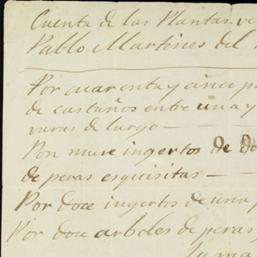 Cuenta de las Plantas ve
Pablo Martines del
Por cuarenta y cinco p
de castaños entre una y
varas de largo —
Por nueve ingertos de Do
de peras esquisitas —
Por doce ingertos de una p
Por doce arboles de peras,
Suma